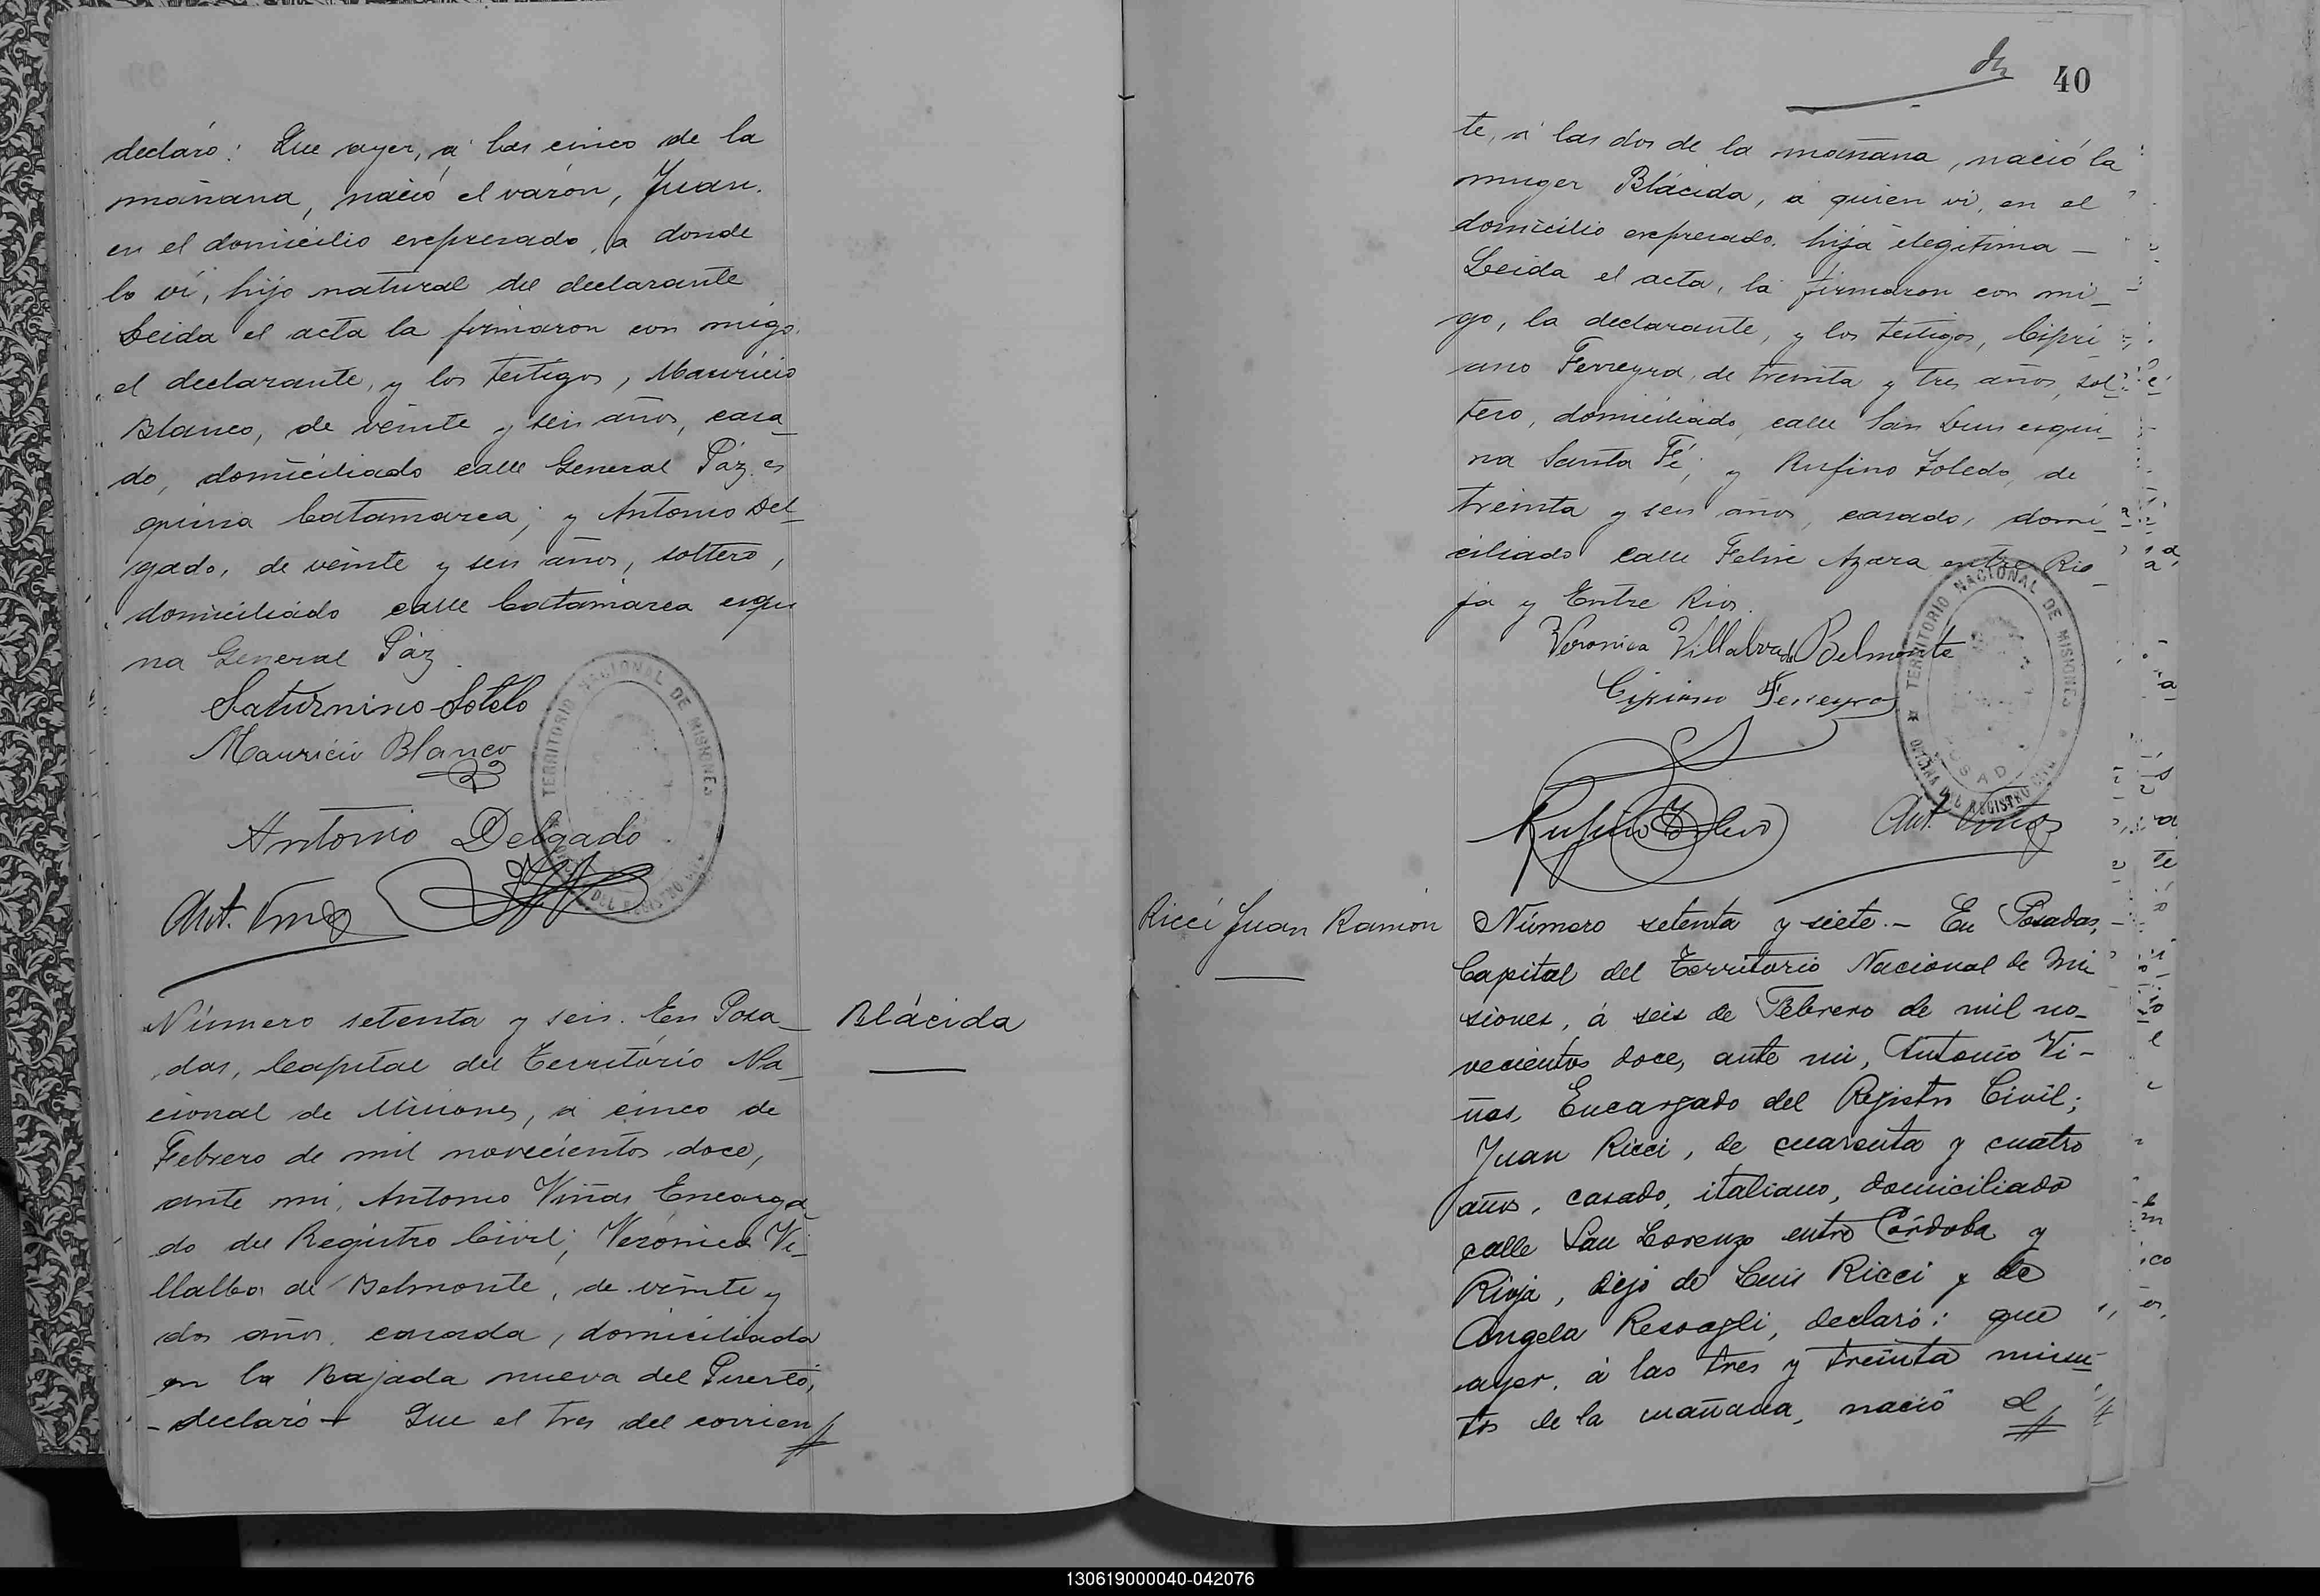 declaró: Que ayer, á las cinco de la
mañana, nació el varón, Juan.
en el domicilio expresado, a donde
lo ví, hijo natural del declarante
Leida el acta la firmaron con migo.
el declarante, y los testigos, Mauricio
Blanco, de veinte y seis años, casa_
do, domiciliado calle General Páz es
quina Catamarca; y Antonio Del_
gado, de veinte y seis años, soltero,
domiciliado calle Catamarca esqui
na General Páz.
Saturnino Sotelo
Mauricio Blanco
Antonio Delgado
Ant. Viñas
TERRITORIO NACIONAL DE MISIONES
DEL REGISTRO CIVIL
Número setenta y seis. En Posa_
das, Capital del Território Na_
cional de Misiones, á cinco de
Febrero de mil novecientos doce,
ante mi, Antonio Viñas Encarga_
do del Registro Civil; Verónica Vi_
llalba de Belmonte, de veinte y
dos años, casada, domiciliada
en la Bajada nueva del Puerto,
declaró Que el tres del corrien
Blácida
40
te, á las dos de la mañana, nació la
muger Blácida, á quien ví, en el
domicilio expresado. hija ilegitima _
Leida el acta, la firmaron con mi_
go, la declarante, y los testigos, Cipri
ano Ferreyra, de treinta y tres años, sol_
tero, domiciliado, calle San Luis esqui_
na Santa Fé; y Rufino Toledo, de
treinta y seis años, casado, domi_
ciliado calle Felix Azara entre Rio_
ja y Entre Rios.
Veronica Villalva de Belmonte
Cipriano Ferreyra
Rufino Toledo
Ant. Viñas
TERRITORIO NACIONAL DE MISIONES
OFICINA DEL REGISTRO CIVIL
POSADAS
Ricci Juan Ramón
Número setenta y siete.- En Posadas,
Capital del Territorio Nacional de Mi
siones, á seis de Febrero de mil no_
vecientos doce, ante mi, Antonio Vi-
ñas, Encargado del Registro Civil;
Juan Ricci, de cuarenta y cuatro
años, casado, italiano, domiciliado
calle San Lorenzo entre Córdoba y
Rioja, hijo de Luis Ricci y de
Angela declaró: que
ayer, á las tres y treinta minu_
tos de la mañana, nació el
130619000040-042076